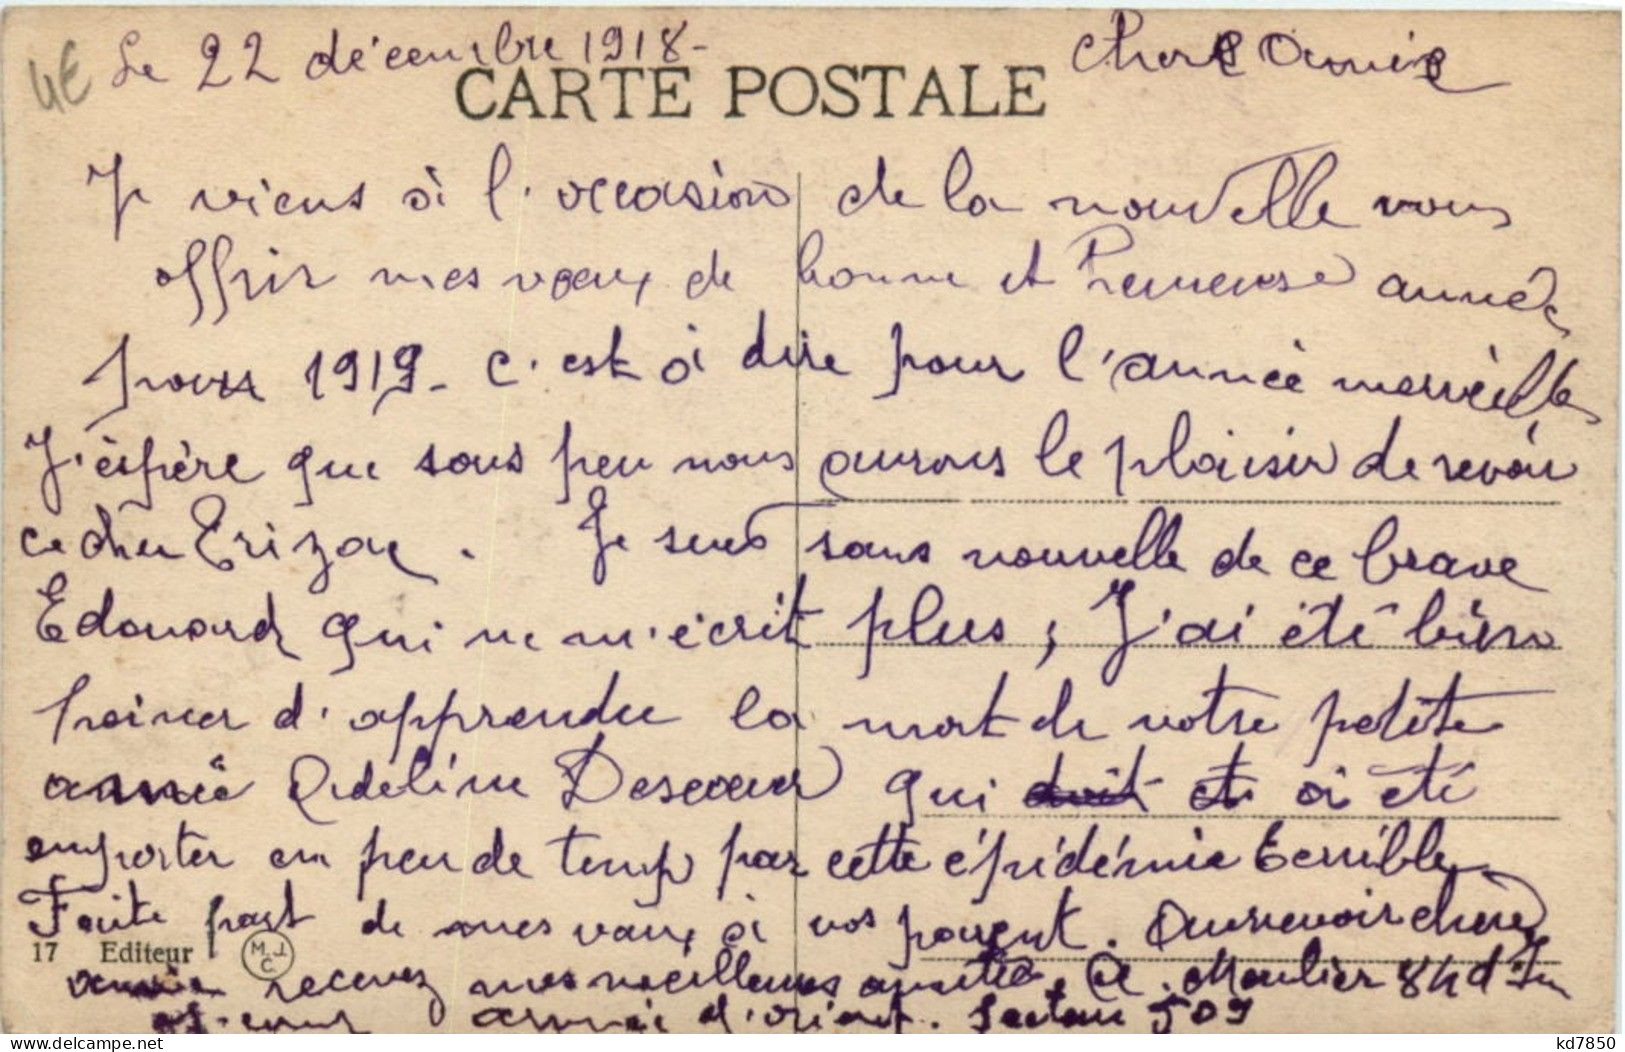 4E
Le 22 décembre 1918-
CARTE POSTALE
Chere Amie
Je viens à l'occasion de la nouvelle vous
offrir mes vœux de bonne et année
pour 1919- C'est à dire pour l'année
J'éspère que sous peu nous aurons le plaisir de revoir
ce cher Erizac. Je suis sans nouvelle de ce brave
Edouard qui ne m'écrit plus, J'ai été bien
peiner d'apprendre la mort de votre petite
amie Adeline qui doit et à été
emporter en peu de temp par cette épidémie terrible
Faite part de mes vœux à vos parent. Aurrevoir chère
17 Editeur M.J.C.
amie recevez mes meilleures amitié. Moulier 84 d'In
armée d'orient. Secteur 509
©-foto-von-kd7850@delcampe.net
kd7850